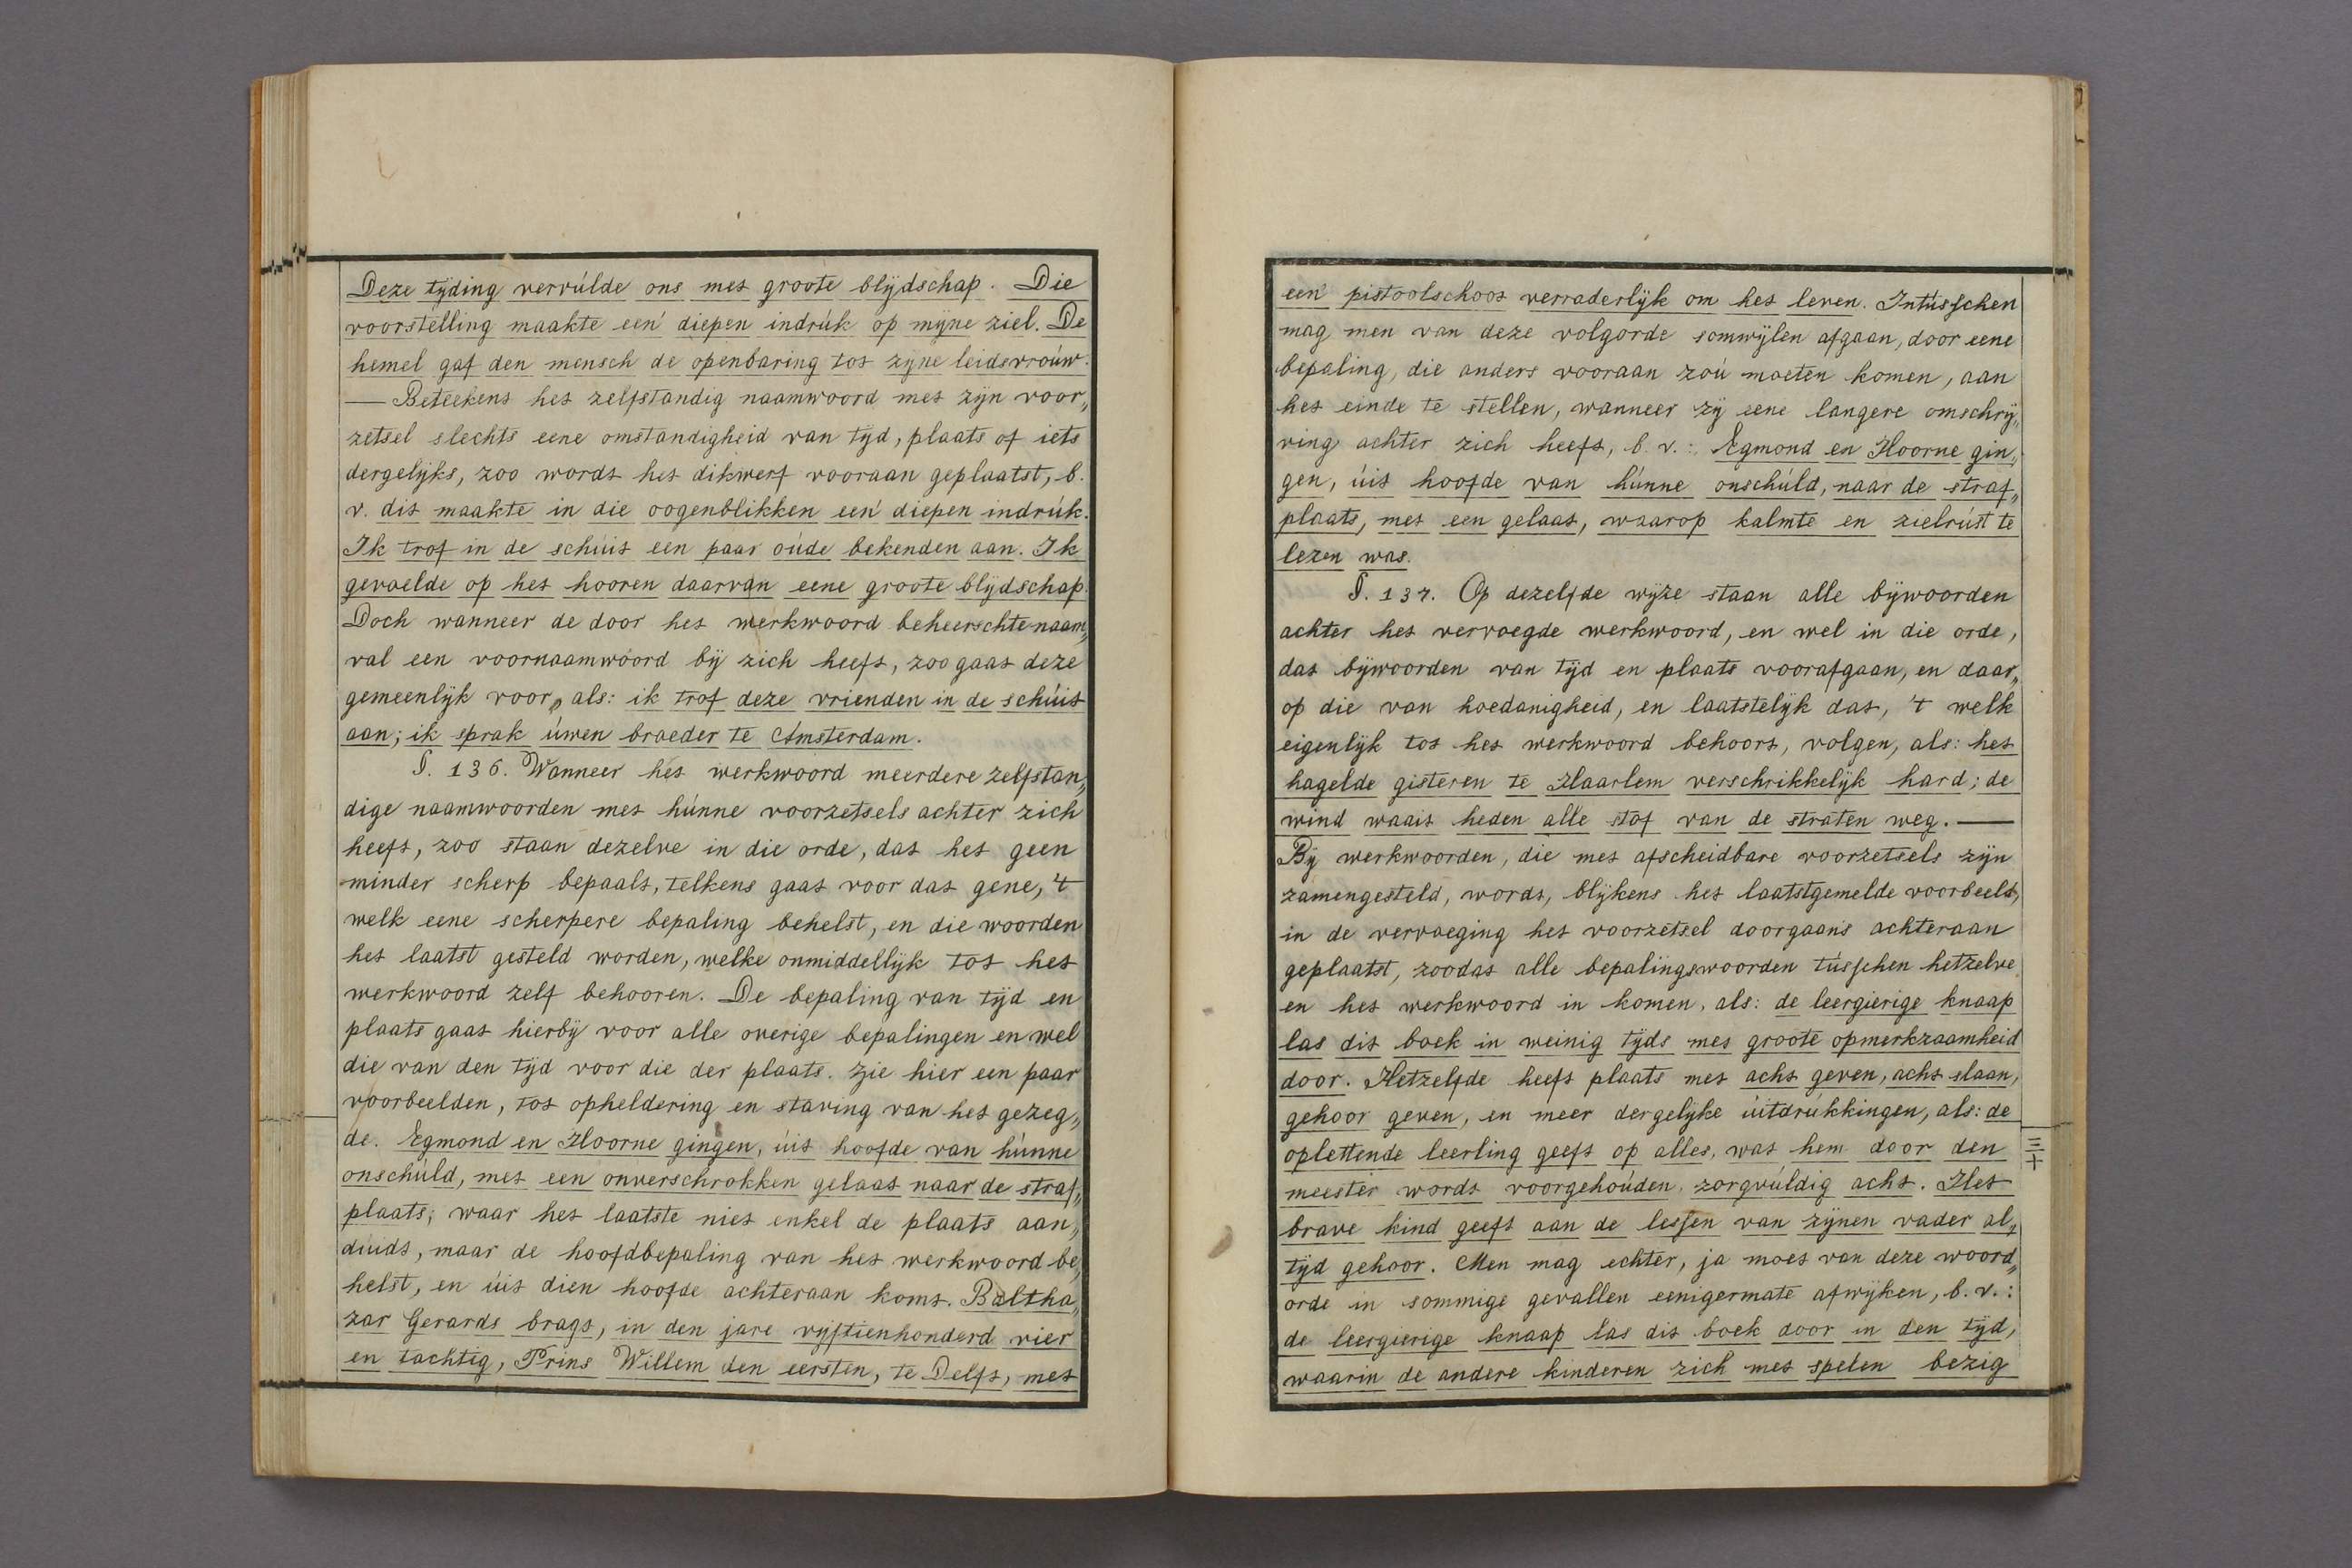 Deze tijding vervúlde ons met groote blijdschap. Die
voorstelling maakte een' diepen indrúk op mijne ziel. De
hemel gaf den mensch de openbaring tot zijne leidsvroúw.
— Beteekent het zelfstandig naamwoord met zijn voor„
zetsel slechts eene omstandigheid van tijd, plaats of iets
dergelijks, zoo wordt het dikwerf vooraan geplaatst, b.
v. dit maakte in die oogenblikken een' diepen indrúk.
Ik trof in de schúit een paar oúde bekenden aan. Ik
gevoelde op het hooren daarvan eene groote blijdschap.
Doch wanneer de door het werkwoord beheerschte naam„
val een voornaamwoord bij zich heeft, zoo gaat deze
gemeenlijk voor, als: ik trof deze vrienden in de schúit
aan; ik sprak úwen broeder te Amsterdam.
§. 136. Wanneer het werkwoord meerdere zelfstan„
dige naamwoorden met húnne voorzetsels achter zich
heeft, zoo staan dezelve in die orde, dat het geen
minder scherp bepaalt, telkens gaat voor dat gene, 't
welk eene scherpere bepaling behelst, en die woorden
het laatst gesteld worden, welke onmiddellijk tot het
werkwoord zelf behooren. De bepaling van tijd en
plaats gaat hierbij voor alle overige bepalingen en wel
die van den tijd voor die der plaats. Zie hier een paar
voorbeelden, tot opheldering en staving van het gezeg„
de. Egmond en Hoorne gingen, úit hoofde van húnne
onschúld, met een onverschrokken gelaat naar de straf„
plaats; waar het laatste niet enkel de plaats aan„
dúidt, maar de hoofdbepaling van het werkwoord be„
helst, en úit dien hoofde achteraan komt. Baltha„
zar Gerards bragt, in den jare vijftienhonderd vier
en tachtig, Prins Willem den eersten, te Delft, met
een' pistoolschoot verraderlijk om het leven. Intússchen
mag men van deze volgorde somwijlen afgaan, door eene
bepaling, die anders vooraan zoú moeten komen, aan
het einde te stellen, wanneer zij eene langere omschrij„
ving achter zich heeft, b. v.: Egmond en Hoorne gin„
gen, úit hoofde van húnne onschúld, naar de straf„
plaats, met een gelaat, waarop kalmte en zielrúst te
lezen was.
§. 137. Op dezelfde wijze staan alle bijwoorden
achter het vervoegde werkwoord, en wel in die orde,
dat bijwoorden van tijd en plaats voorafgaan, en daar„
op die van hoedanigheid, en laatstelijk dat, 't welk
eigenlijk tot het werkwoord behoort, volgen, als: het
hagelde gisteren te Haarlem verschrikkelijk hard; de
wind waait heden alle stof van de straten weg. —
Bij werkwoorden, die met afscheidbare voorzetsels zijn
zamengesteld, wordt, blijkens het laatstgemelde voorbeeld,
in de vervoeging het voorzetsel doorgaans achteraan
geplaatst, zoodat alle bepalingswoorden tússchen hetzelve
en het werkwoord in komen, als: de leergierige knaap
las dit boek in weinig tijds met groote opmerkzaamheid
door. Hetzelfde heeft plaats met acht geven, acht slaan,
gehoor geven, en meer dergelijke úitdrúkkingen, als: de
oplettende leerling geeft op alles, wat hem door den
meester wordt voorgehoúden, zorgvúldig acht. Het
brave kind geeft aan de lessen van zijnen vader al„
tijd gehoor. Men mag echter, ja moet van deze woord„
orde in sommige gevallen eenigermate afwijken, b. v.:
de leergierige knaap las dit boek door in den tijd,
waarin de andere kinderen zich met spelen bezig
三十